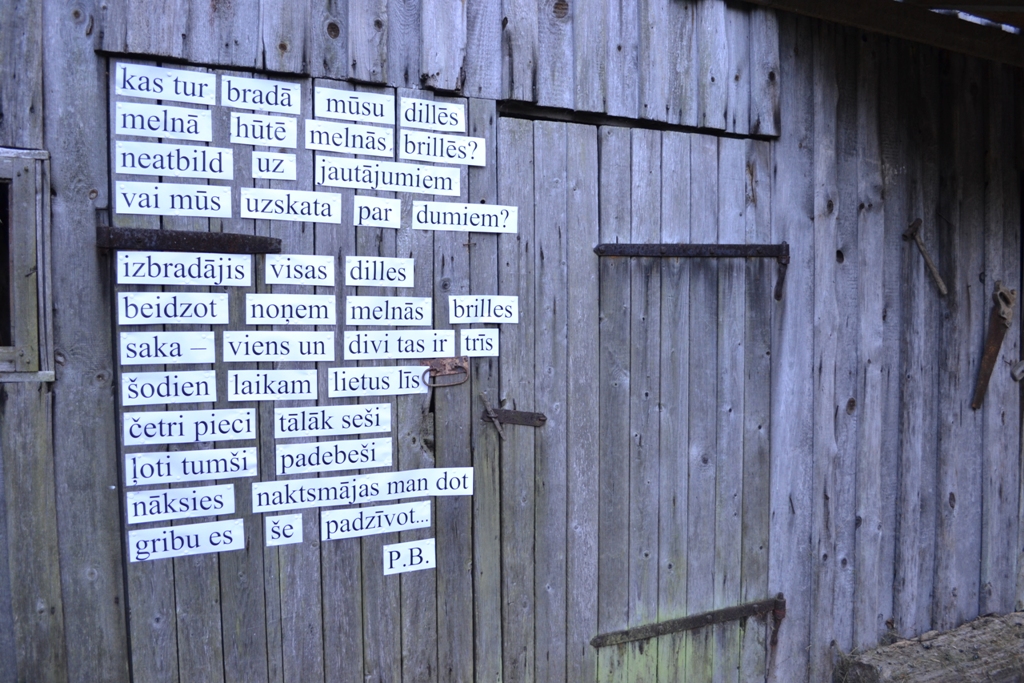 kas tur bradā mūsu dillēs
melnā hūtē melnās brillēs?
neatbild uz jautājumiem
vai mūs uzskata par dumiem?
izbradājis visas dilles
beidzot noņem melnās brilles
saka – viens un divi tas ir trīs
šodien laikam lietus līs
četri pieci tālāk seši
ļoti tumši padebeši
nāksies naktsmājas man dot
gribu es še padzīvot...
P.B.